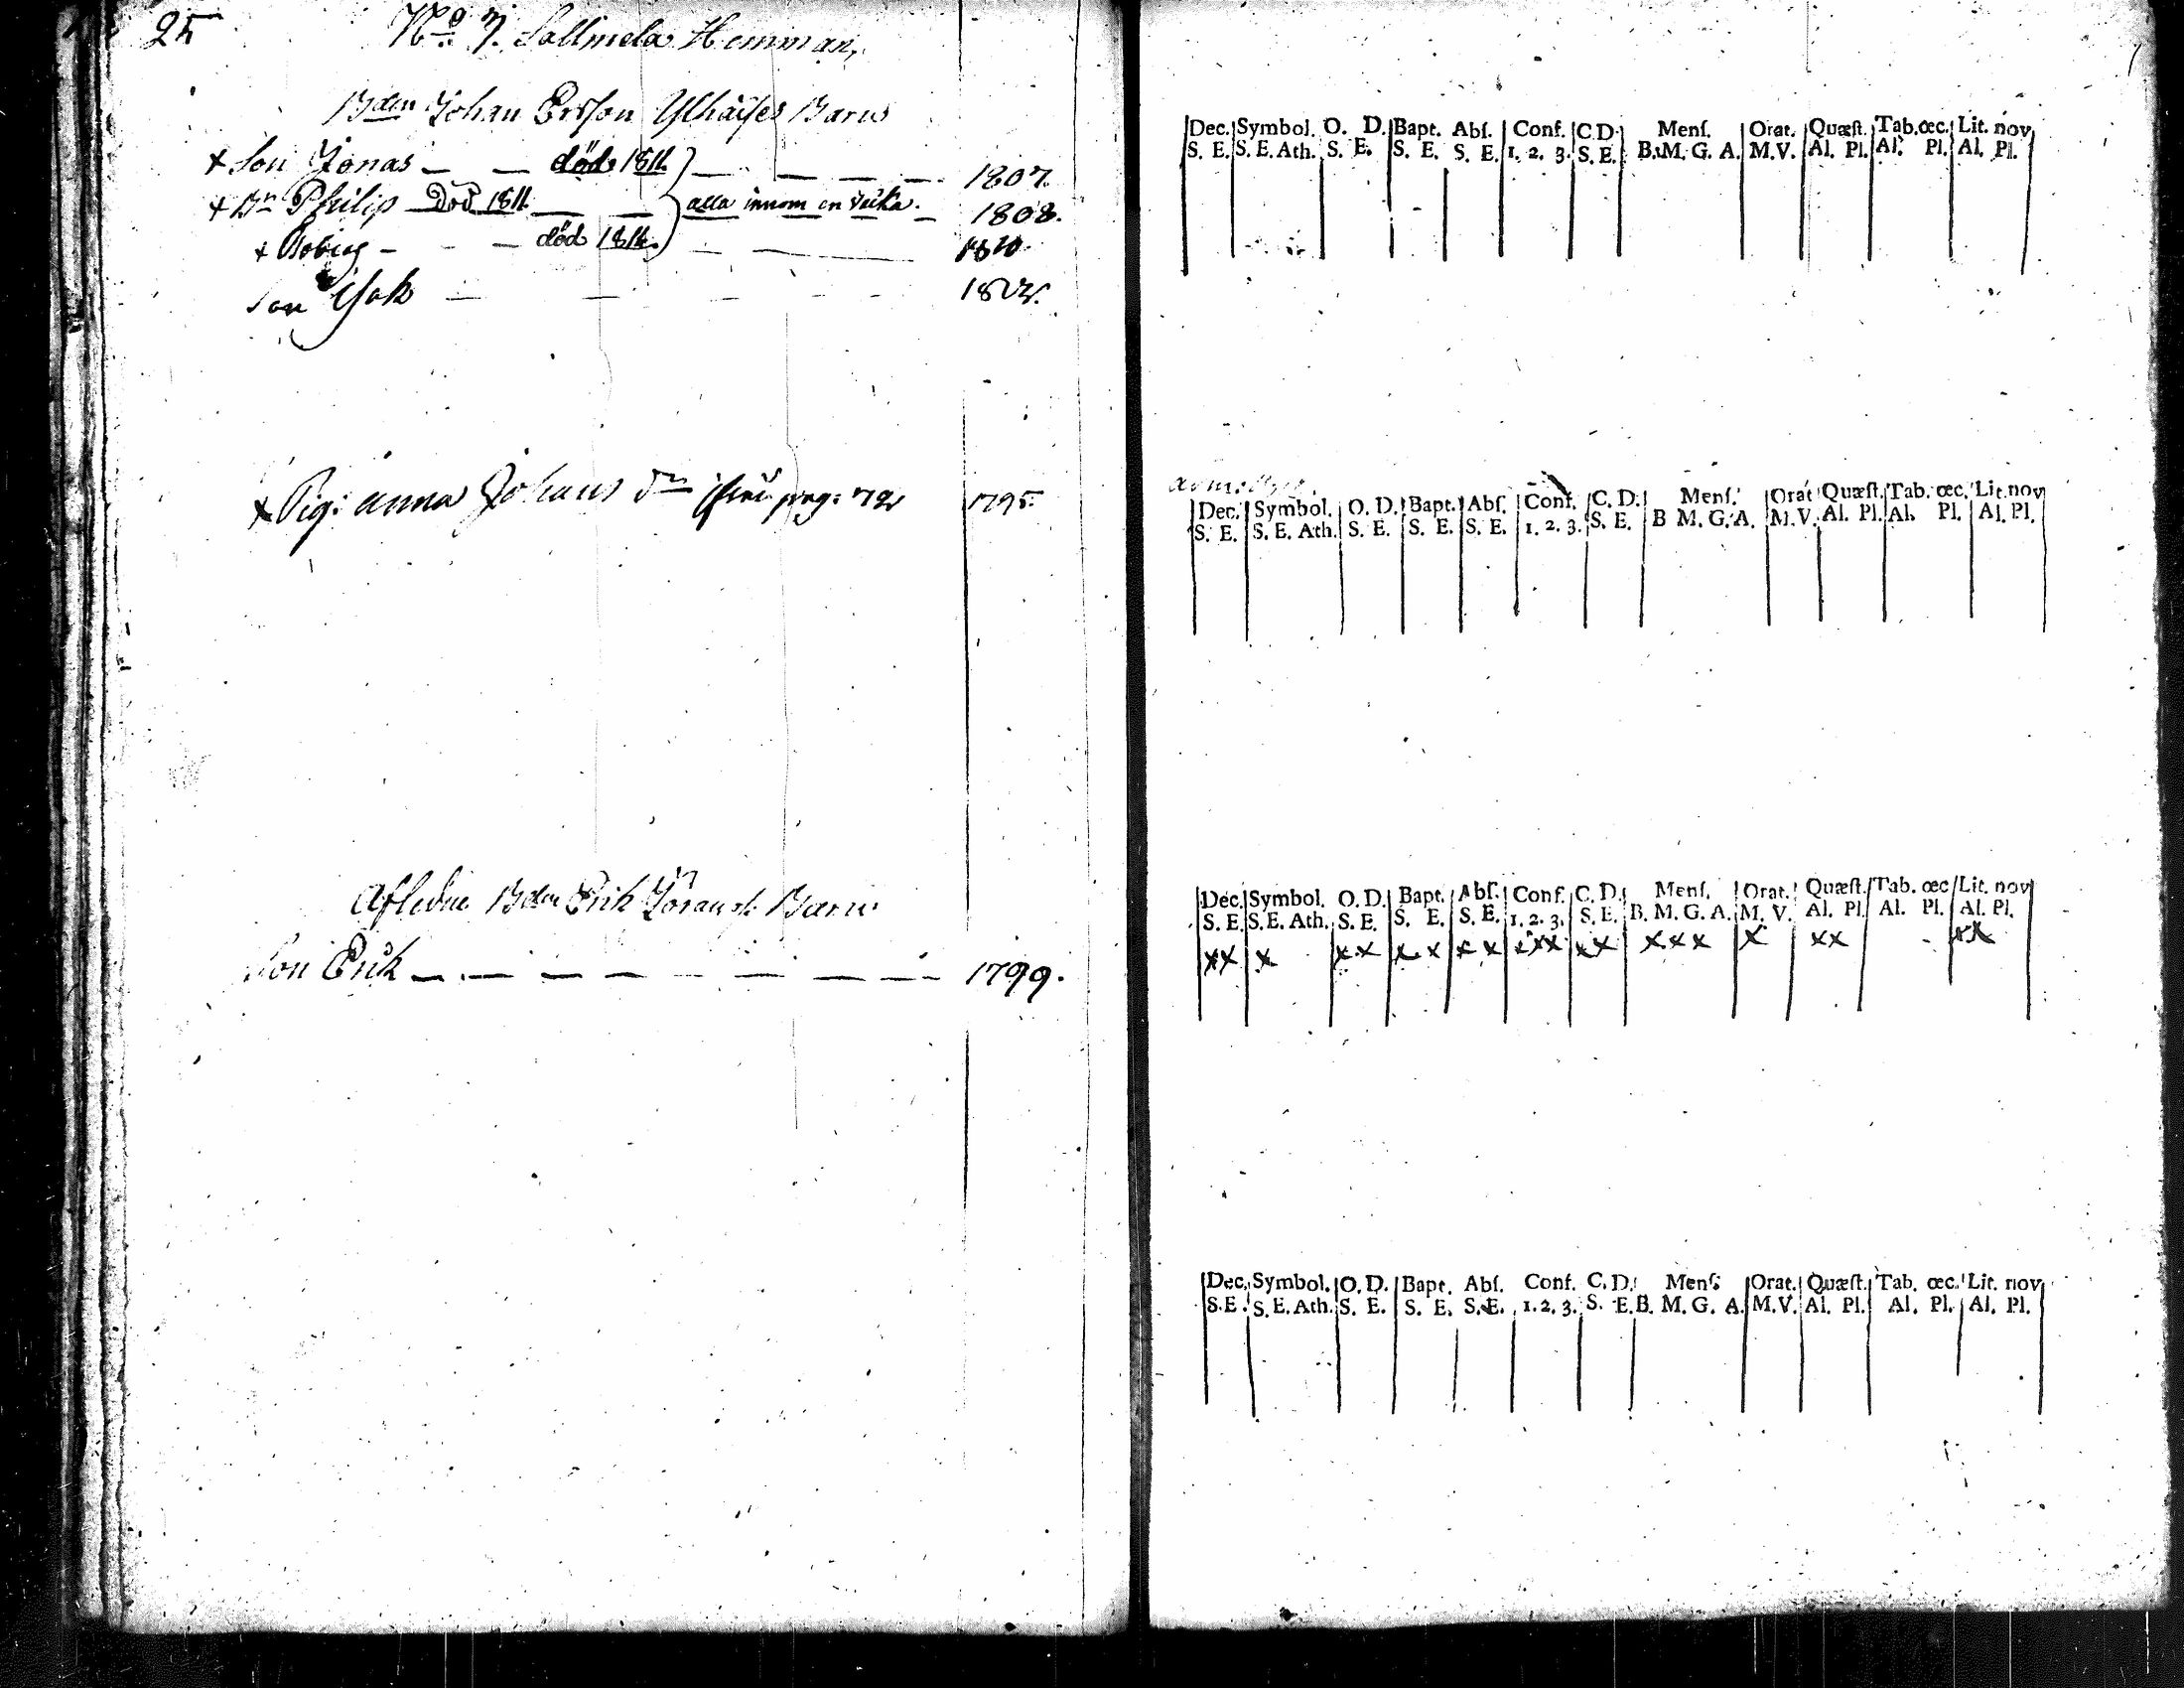 25
No 7. Sallmela Hemman.
Bden Johan Ersson Barn
+ Son Jonas — — död 1811. — — — — 1807.
+ Dr Philip — Död 1811. — — alla innom en vecka. — 1808.
+ Tobias — — död 1811. — — 1810.
Son Isak — — — — — 182
+ Pig: Anna Johans dr pag: 72 1795.
Afledne Bden Erik Görans Barn
Son Erik — — — — — — — — 1799.
Dec. Symbol. O. D. Bapt. Abſ. Conf. C.D. Menſ. Orat. Quæſt. Tab. œc. Lit. nov
S. E. S. E. Ath. S. E. S. E. S. E. 1. 2. 3. S. E. B. M. G. A. M.V. Al. Pl. Al. Pl. Al. Pl.
Dec. Symbol. O. D. Bapt. Abſ. Conf. C. D. Menſ. Orat. Quæſt. Tab. œc. Lit. nov
S. E. S. E. Ath. S. E. S. E. S. E. 1. 2. 3. S. E. B M. G. A. M.V. Al. Pl. Al. Pl. Al. Pl.
Dec. Symbol. O. D. Bapt. Abſ. Conf. C. D. Menſ. Orat. Quæſt. Tab. œc Lit. nov
S. E. S. E. Ath. S. E. S. E. S. E. 1. 2. 3. S. E. B. M. G. A. M. V. Al. Pl. Al. Pl. Al. Pl.
x x x x x x x x x x x x x x x x x x x x x x x
Dec. Symbol. O. D. Bapt. Abſ. Conf. C. D. Menſ. Orat. Quæſt. Tab. œc. Lit. nov
S. E. S. E. Ath. S. E. S. E. S. E. 1. 2. 3. S. E. B. M. G. A. M.V. Al. Pl. Al. Pl. Al. Pl.